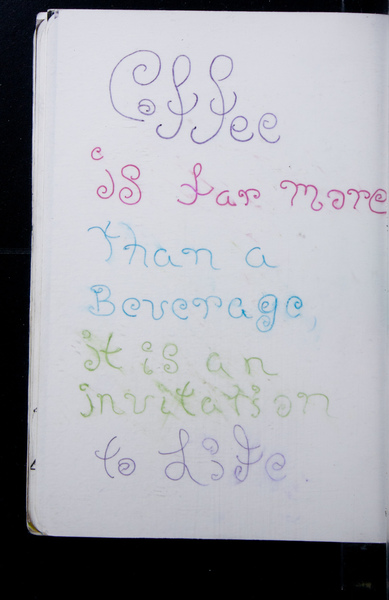 Coffee
is far more
than a
Beverage,
it is an
invitation
to Life.